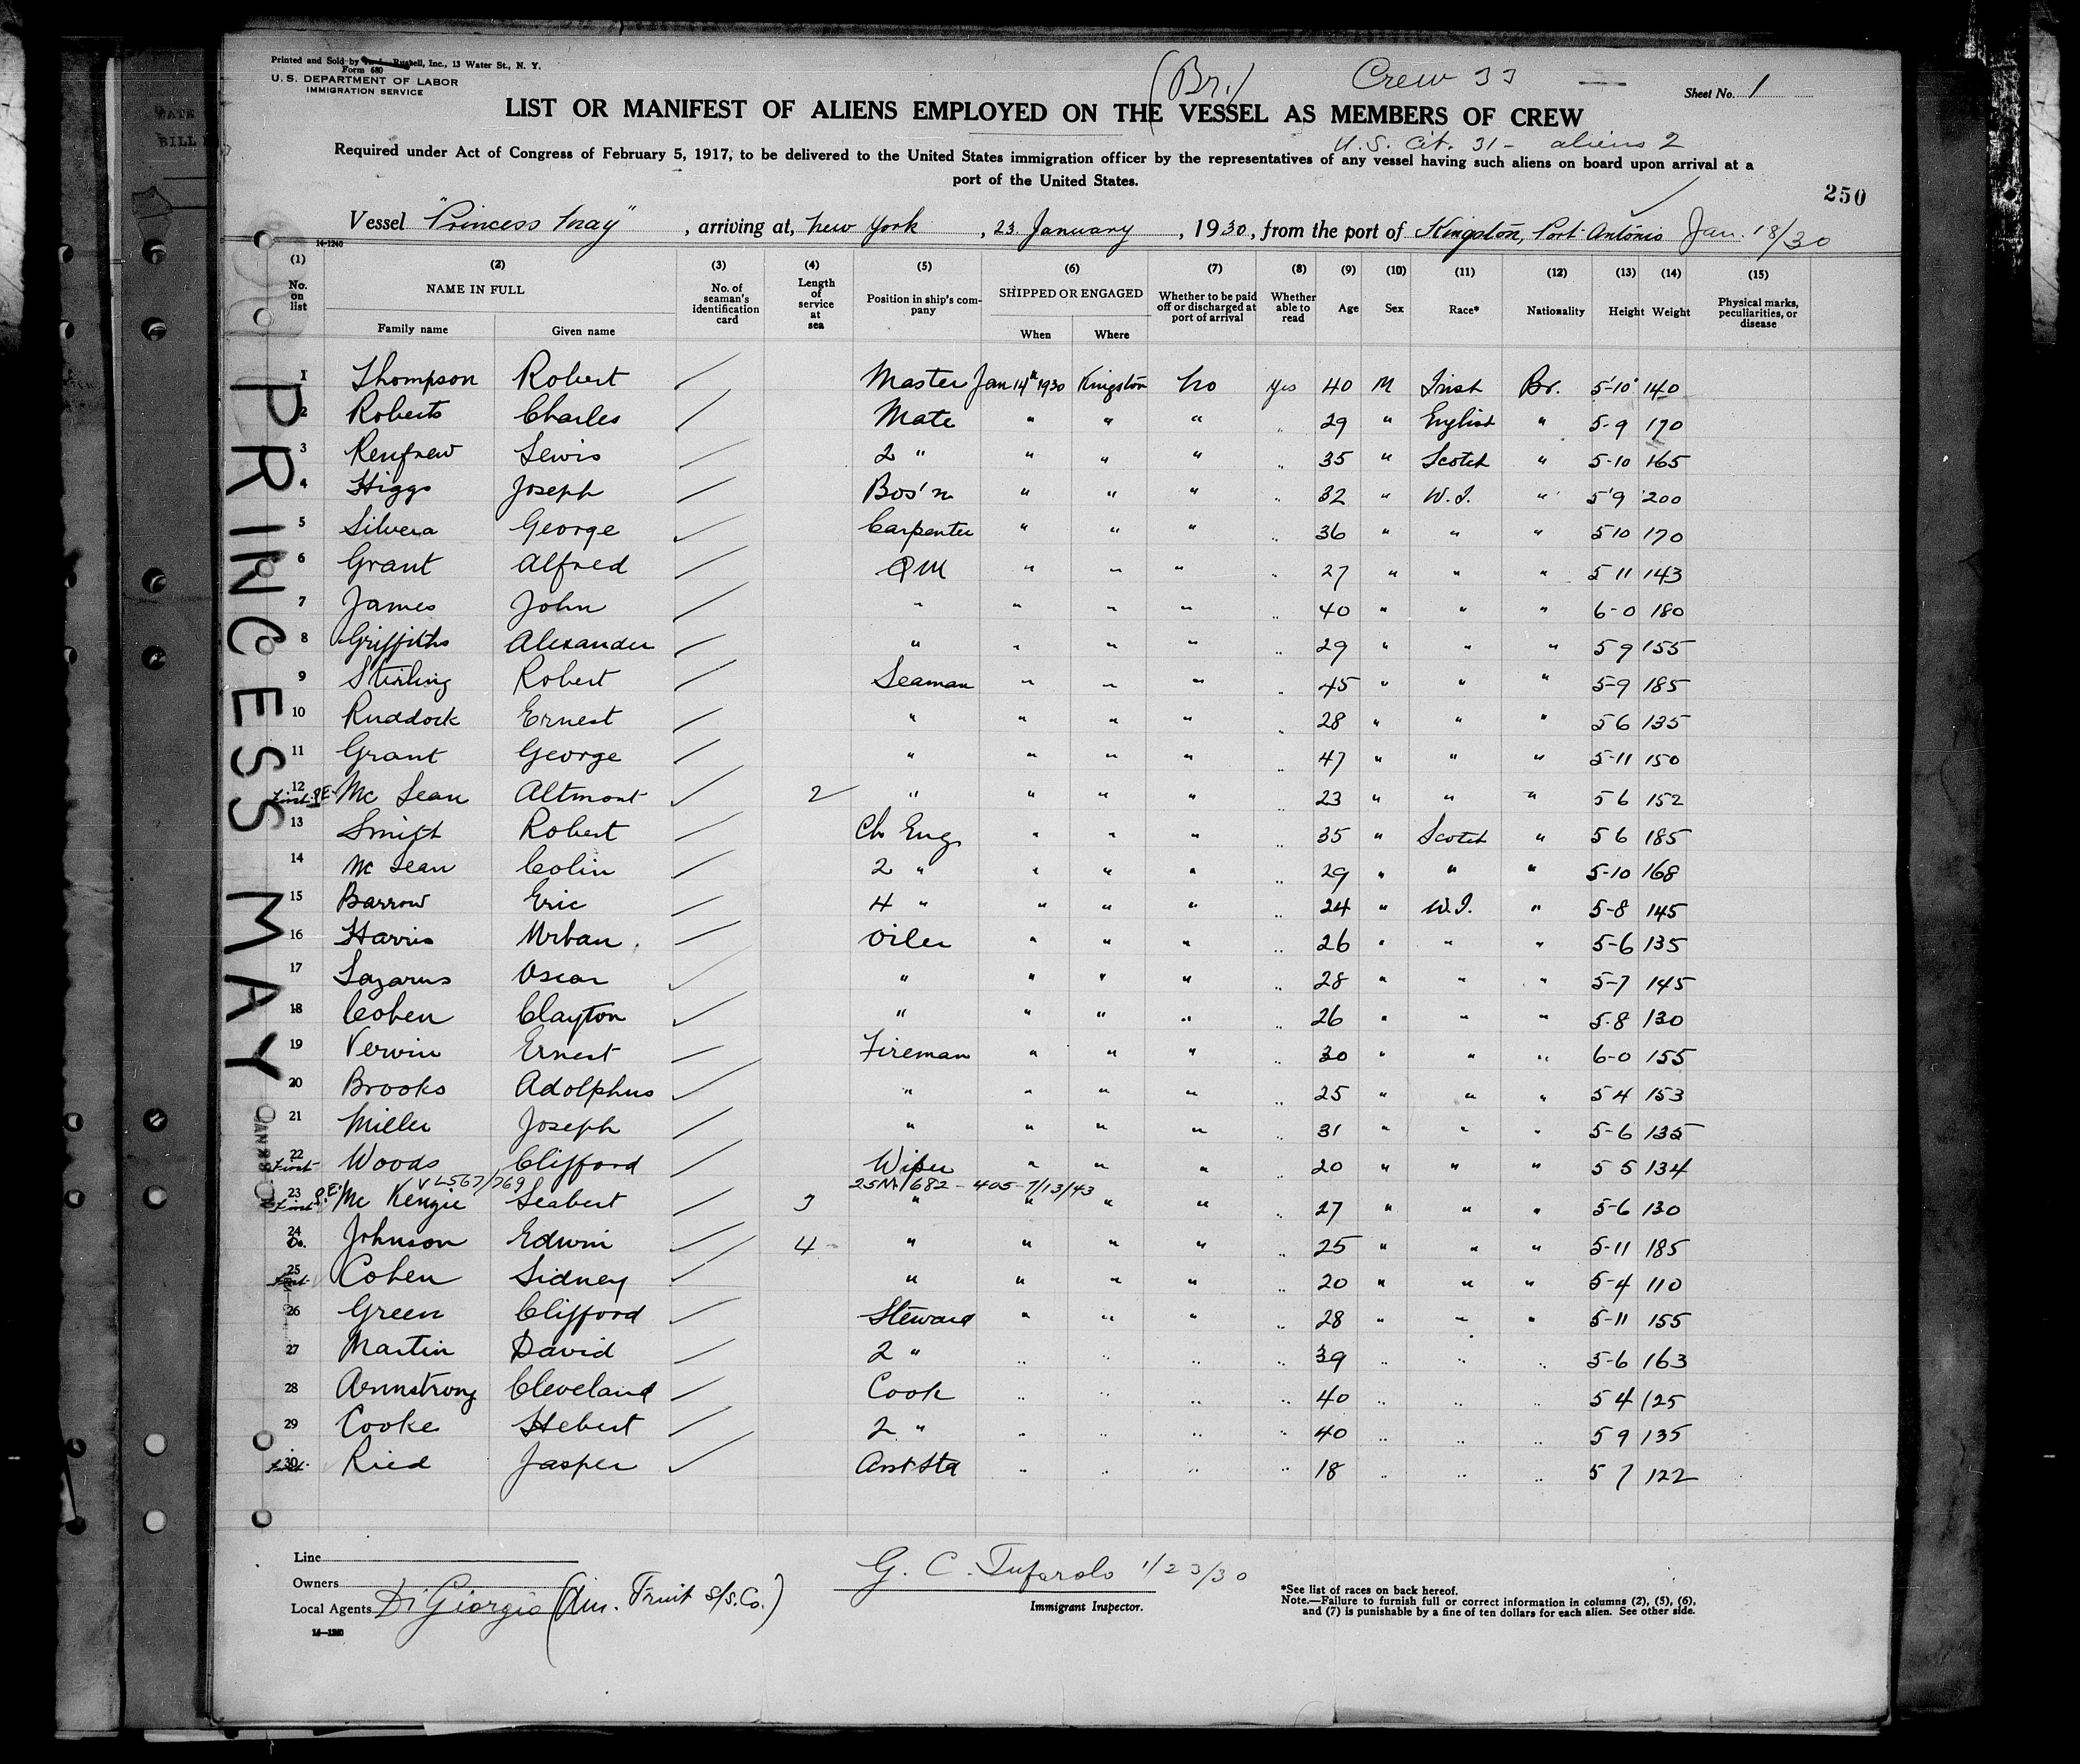 Printed and Sold by Russell, Inc., 13 Water St., N. Y.
Form 680
U. S. DEPARTMENT OF LABOR
IMMIGRATION SERVICE
(Br.)
Crew 33
Sheet No. 1
LIST OR MANIFEST OF ALIENS EMPLOYED ON THE VESSEL AS MEMBERS OF CREW
U.S. Cit. 31 - aliens 2
Required under Act of Congress of February 5, 1917, to be delivered to the United States immigration officer by the representatives of any vessel having such aliens on board upon arrival at a
port of the United States.
250
Vessel "Princess May", arriving at, New York, 23 January, 1930, from the port of Kingston, Port Antonio Jan. 18/30
14-1240
(1) (2) (3) (4) (5) (6) (7) (8) (9) (10) (11) (12) (13) (14) (15)
No. on list NAME IN FULL Family name Given name No. of seaman's identification card Length of service at sea Position in ship's company SHIPPED OR ENGAGED When Where Whether to be paid off or discharged at port of arrival Whether able to read Age Sex Race* Nationality Height Weight Physical marks, peculiarities, or disease
PRINCESS MAY
1 Thompson Robert Master Jan 14th 1930 Kingston No Yes 40 M Irish Br. 5'-10" 140
2 Roberts Charles Mate " " " " 29 " English " 5-9 170
3 Renfrew Lewis 2 " " " " " 35 " Scotch " 5-10 165
4 Higgs Joseph Bos'n " " " " 32 " W.I. " 5'9 200
5 Silvera George Carpenter " " " " 36 " " " 5 10 170
6 Grant Alfred QM " " " " 27 " " " 5 11 143
7 James John " " " " " 40 " " " 6-0 180
8 Griffiths Alexander " " " " " 29 " " " 5 9 155
9 Stirling Robert Seaman " " " " 45 " " " 5-9 185
10 Ruddock Ernest " " " " " 28 " " " 5 6 135
11 Grant George " " " " " 47 " " " 5-11 150
12 P.E. Mc Lean Altmont 2 " " " " " 23 " " " 5 6 152
13 Smift Robert Ch Eng. " " " " 35 " Scotch " 5 6 185
14 Mc Lean Colin 2 " " " " " 29 " " " 5-10 168
15 Barrow Eric 4 " " " " " 24 " W.I. " 5-8 145
16 Harris Urban Oiler " " " " 26 " " " 5-6 135
17 Lazarus Oscar " " " " " 28 " " " 5-7 145
18 Cohen Clayton " " " " " 26 " " " 5.8 130
19 Verwin Ernest Fireman " " " " 30 " " " 6-0 155
20 Brooks Adolphus " " " " " 25 " " " 5 4 153
21 Miller Joseph " " " " " 31 " " " 5-6 135
22 First Woods Clifford Wiper " " " " 20 " " " 5 5 134
V L567/769 25M/682 - 405 - 7/13/43
23 First P.E. Mc Kenzie Seabert 3 " " " " " 27 " " " 5-6 130
24 Do. Johnson Edwin 4 " " " " " 25 " " " 5-11 185
25 First Cohen Sidney " " " " " 20 " " " 5-4 110
26 Green Clifford Steward " " " " 28 " " " 5-11 155
27 Martin David 2 " " " " " 39 " " " 5-6 163
28 Armstrong Cleveland Cook " " " " 40 " " " 5 4 125
29 Cooke Hebert 2 " " " " " 40 " " " 5 9 135
30 First Ried Jasper Asst Std " " " " 18 " " " 5 7 122
Line
Owners
Local Agents Di Giorgio (Am. Fruit S/S. Co.)
14-1240
G. C. Tufarolo 1/23/30
Immigrant Inspector.
*See list of races on back hereof.
Note.—Failure to furnish full or correct information in columns (2), (5), (6),
and (7) is punishable by a fine of ten dollars for each alien. See other side.